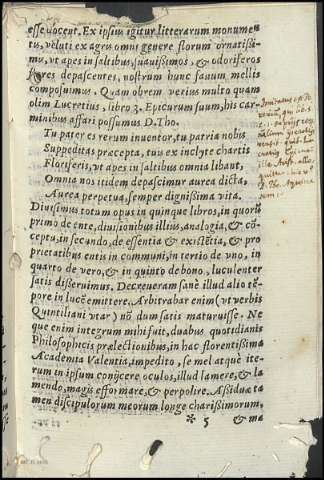 esse vocent. Ex ipsius igitur litterarum monume-
tis, veluti ex agro omni genere florum ornatissi-
mo, vt apes in saltibus, suauissimos, & odoriferos
flores depascentes, nostrum hunc fauum mellis
composuimus. Quam obrem verius multo quam
olim Lucretius, libro 3. Epicurum suum, his car-
minibus affari possumus D. Tho.
Tu pater es rerum inuentor, tu patria nobis
Suppeditas præcepta, tuis ex inclyte chartis
Floriferis, vt apes in saltibus omnia libant,
Omnia nos itidem depascimur aurea dicta,
Aurea perpetua, semper dignissima vita.
Diuisimus totum opus in quinque libros, in quorū
primo de ente, diuisionibus illius, analogia, & cō
ceptu, in secundo, de essentia & existētia, & pro
prietatibus entis in communi, in tertio de vno, in
quarto de vero, & in quinto de bono, luculenter
satis disseruimus. Decreueram sanè illud alio tē-
pore in lucē emittere. Arbitrabar enim (vt verbis
Quintiliani vtar) nō dum satis maturuisse. Ne
que enim integrum mihi fuit, duabus quotidianis
Philosophicis prælectionibus, in hac florentissima
Academia Valentia, impedito, se mel atque ite-
rum in ipsum conijcere oculos, illud lamere, & la
mendo, magis efformare, & perpolire. Assiduæ ta
men discipulorum meorum longe charissimorum,
* 5 & ma